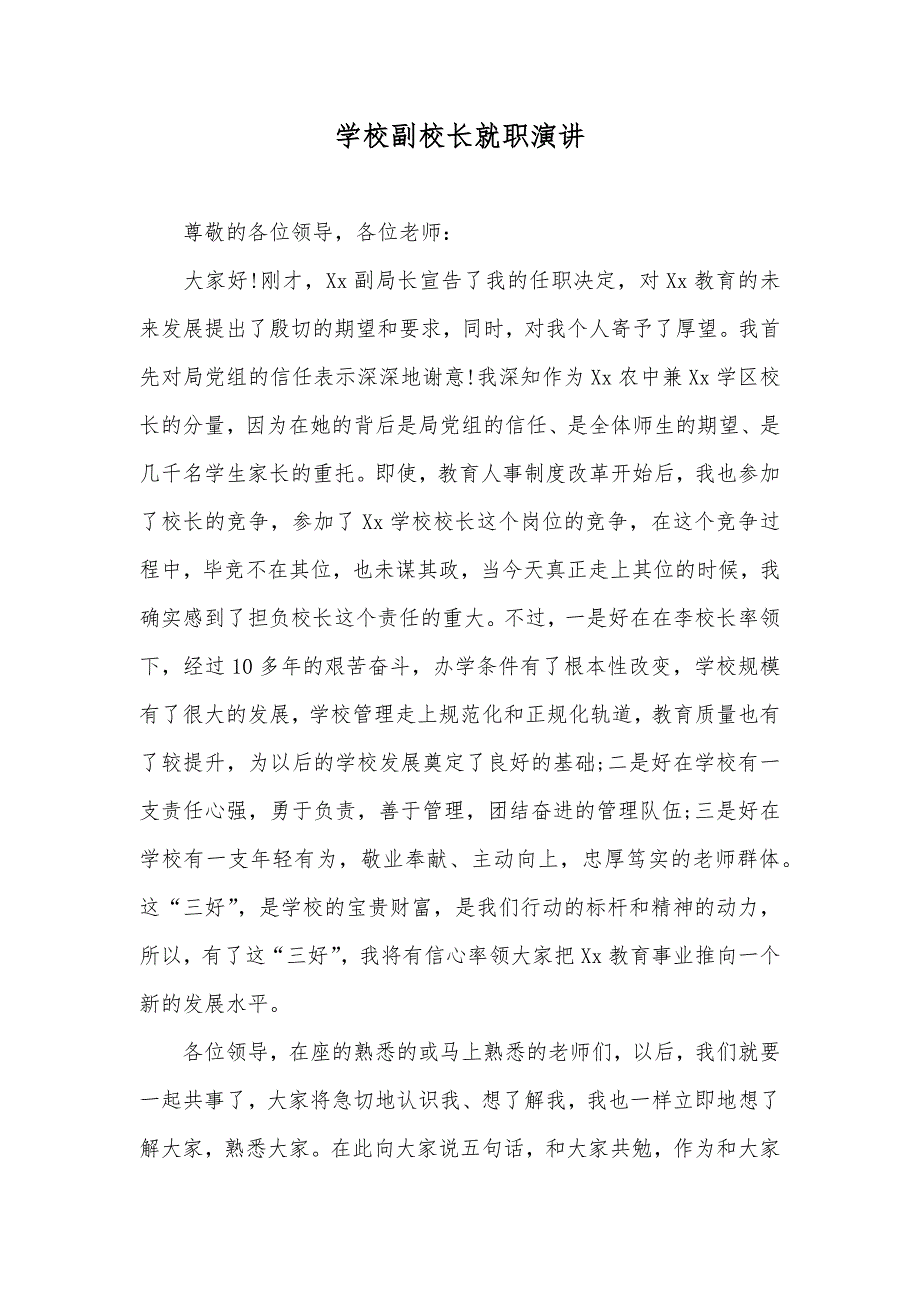 学校副校长就职演讲
尊敬的各位领导，各位老师：
大家好!刚才，Xx 副局长宣告了我的任职决定，对 Xx 教育的未
来发展提出了殷切的期望和要求，同时，对我个人寄予了厚望。我首
先对局党组的信任表示深深地谢意!我深知作为 Xx 农中兼 Xx 学区校
长的分量，因为在她的背后是局党组的信任、是全体师生的期望、是
几千名学生家长的重托。即使，教育人事制度改革开始后，我也参加
了校长的竞争，参加了 Xx 学校校长这个岗位的竞争，在这个竞争过
程中，毕竟不在其位，也未谋其政，当今天真正走上其位的时候，我
确实感到了担负校长这个责任的重大。不过，一是好在在李校长率领
下，经过 10 多年的艰苦奋斗，办学条件有了根本性改变，学校规模
有了很大的发展，学校管理走上规范化和正规化轨道，教育质量也有
了较提升，为以后的学校发展奠定了良好的基础;二是好在学校有一
支责任心强，勇于负责，善于管理，团结奋进的管理队伍;三是好在
学校有一支年轻有为，敬业奉献、主动向上，忠厚笃实的老师群体。
这“三好”，是学校的宝贵财富，是我们行动的标杆和精神的动力，
所以，有了这“三好”，我将有信心率领大家把 Xx 教育事业推向一个
新的发展水平。
各位领导，在座的熟悉的或马上熟悉的老师们，以后，我们就要
一起共事了，大家将急切地认识我、想了解我，我也一样立即地想了
解大家，熟悉大家。在此向大家说五句话，和大家共勉，作为和大家